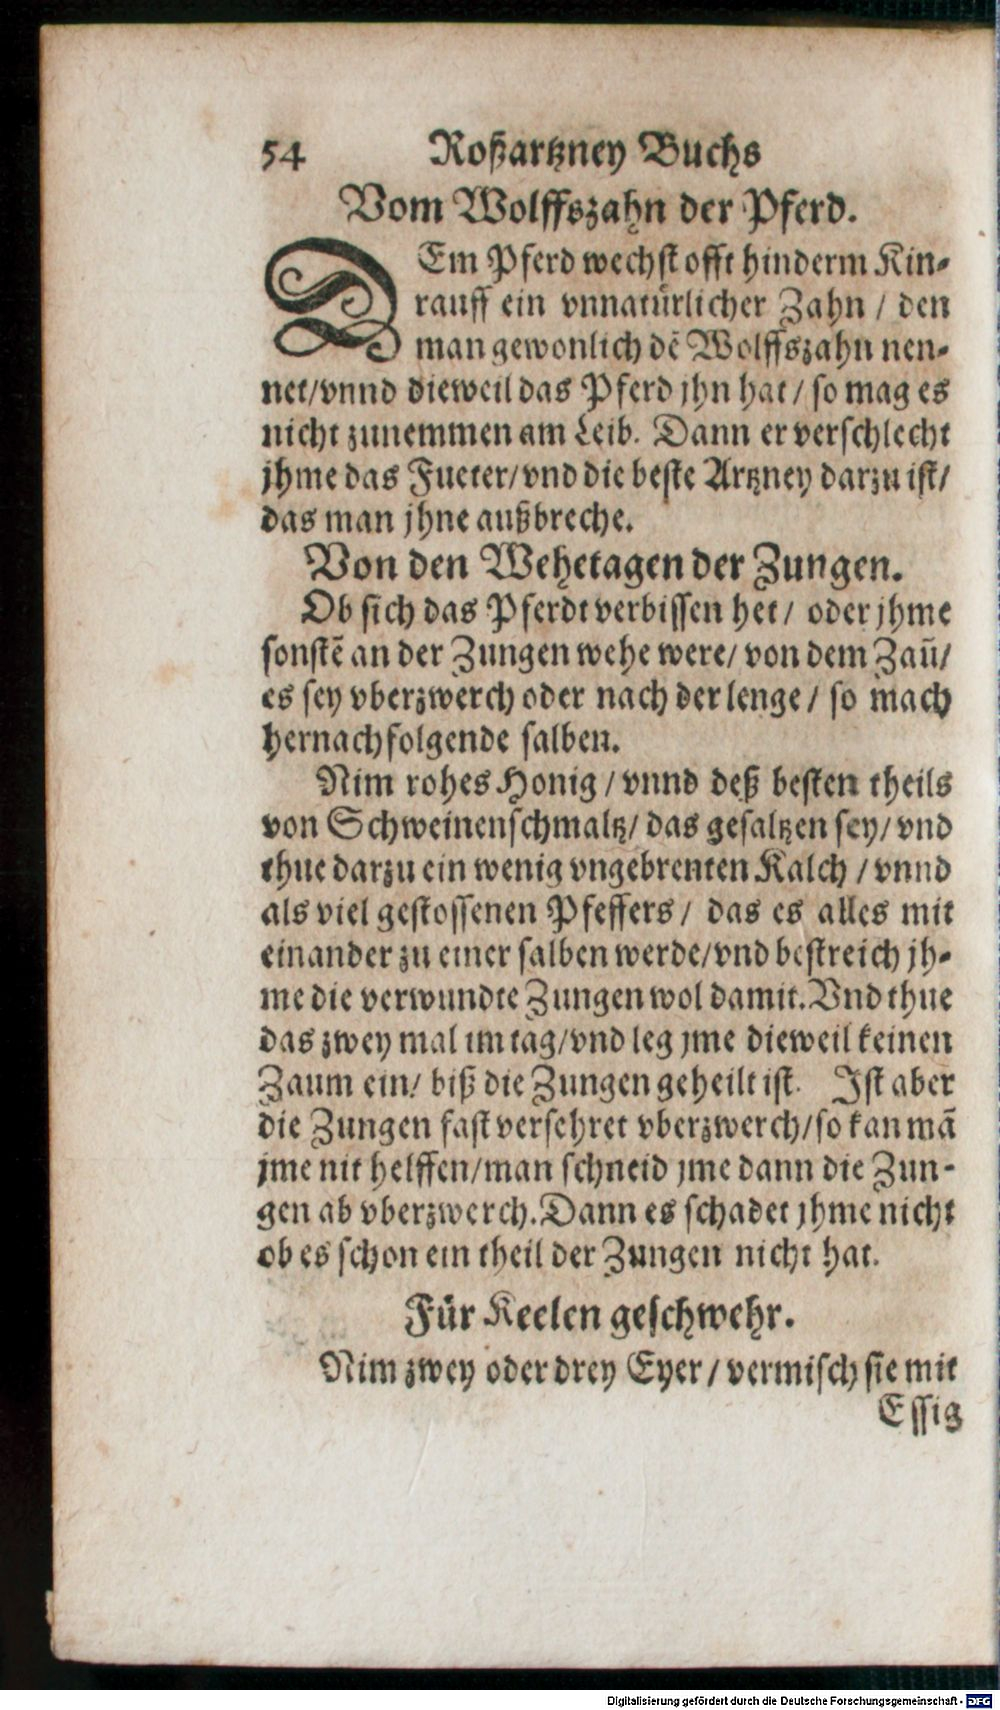 54 Roßartzney Buchs
Vom Wolffszahn der Pferd.
DEm Pferd wechst offt hinderm Kin-
rauff ein vnnatürlicher Zahn / den
man gewonlich dẽ Wolffszahn nen-
net/vnnd dieweil das Pferd jhn hat / so mag es
nicht zunemmen am Leib. Dann er verschlecht
jhme das Fueter/vnd die beste Artzney darzu ist/
das man jhne außbreche.
Von den Wehetagen der Zungen.
Ob sich das Pferdt verbissen het / oder jhme
sonstẽ an der Zungen wehe were/ von dem Zaū/
es sey vberzwerch oder nach der lenge / so mach
hernachfolgende salben.
Nim rohes Honig / vnnd deß besten theils
von Schweinenschmaltz/ das gesaltzen sey/ vnd
thue darzu ein wenig vngebrenten Kalch / vnnd
als viel gestossenen Pfeffers / das es alles mit
einander zu einer salben werde/vnd bestreich jh-
me die verwundte Zungen wol damit. Vnd thue
das zwey mal im tag/vnd leg jme dieweil keinen
Zaum ein/ biß die Zungen geheilt ist. Ist aber
die Zungen fast versehret vberzwerch/so kan mã
jme nit helffen/man schneid jme dann die Zun-
gen ab vberzwerch. Dann es schadet jhme nicht
ob es schon ein theil der Zungen nicht hat.
Für Keelen geschwehr.
Nim zwey oder drey Eyer / vermisch sie mit
Essig
Digitalisierung gefördert durch die Deutsche Forschungsgemeinschaft - DFG